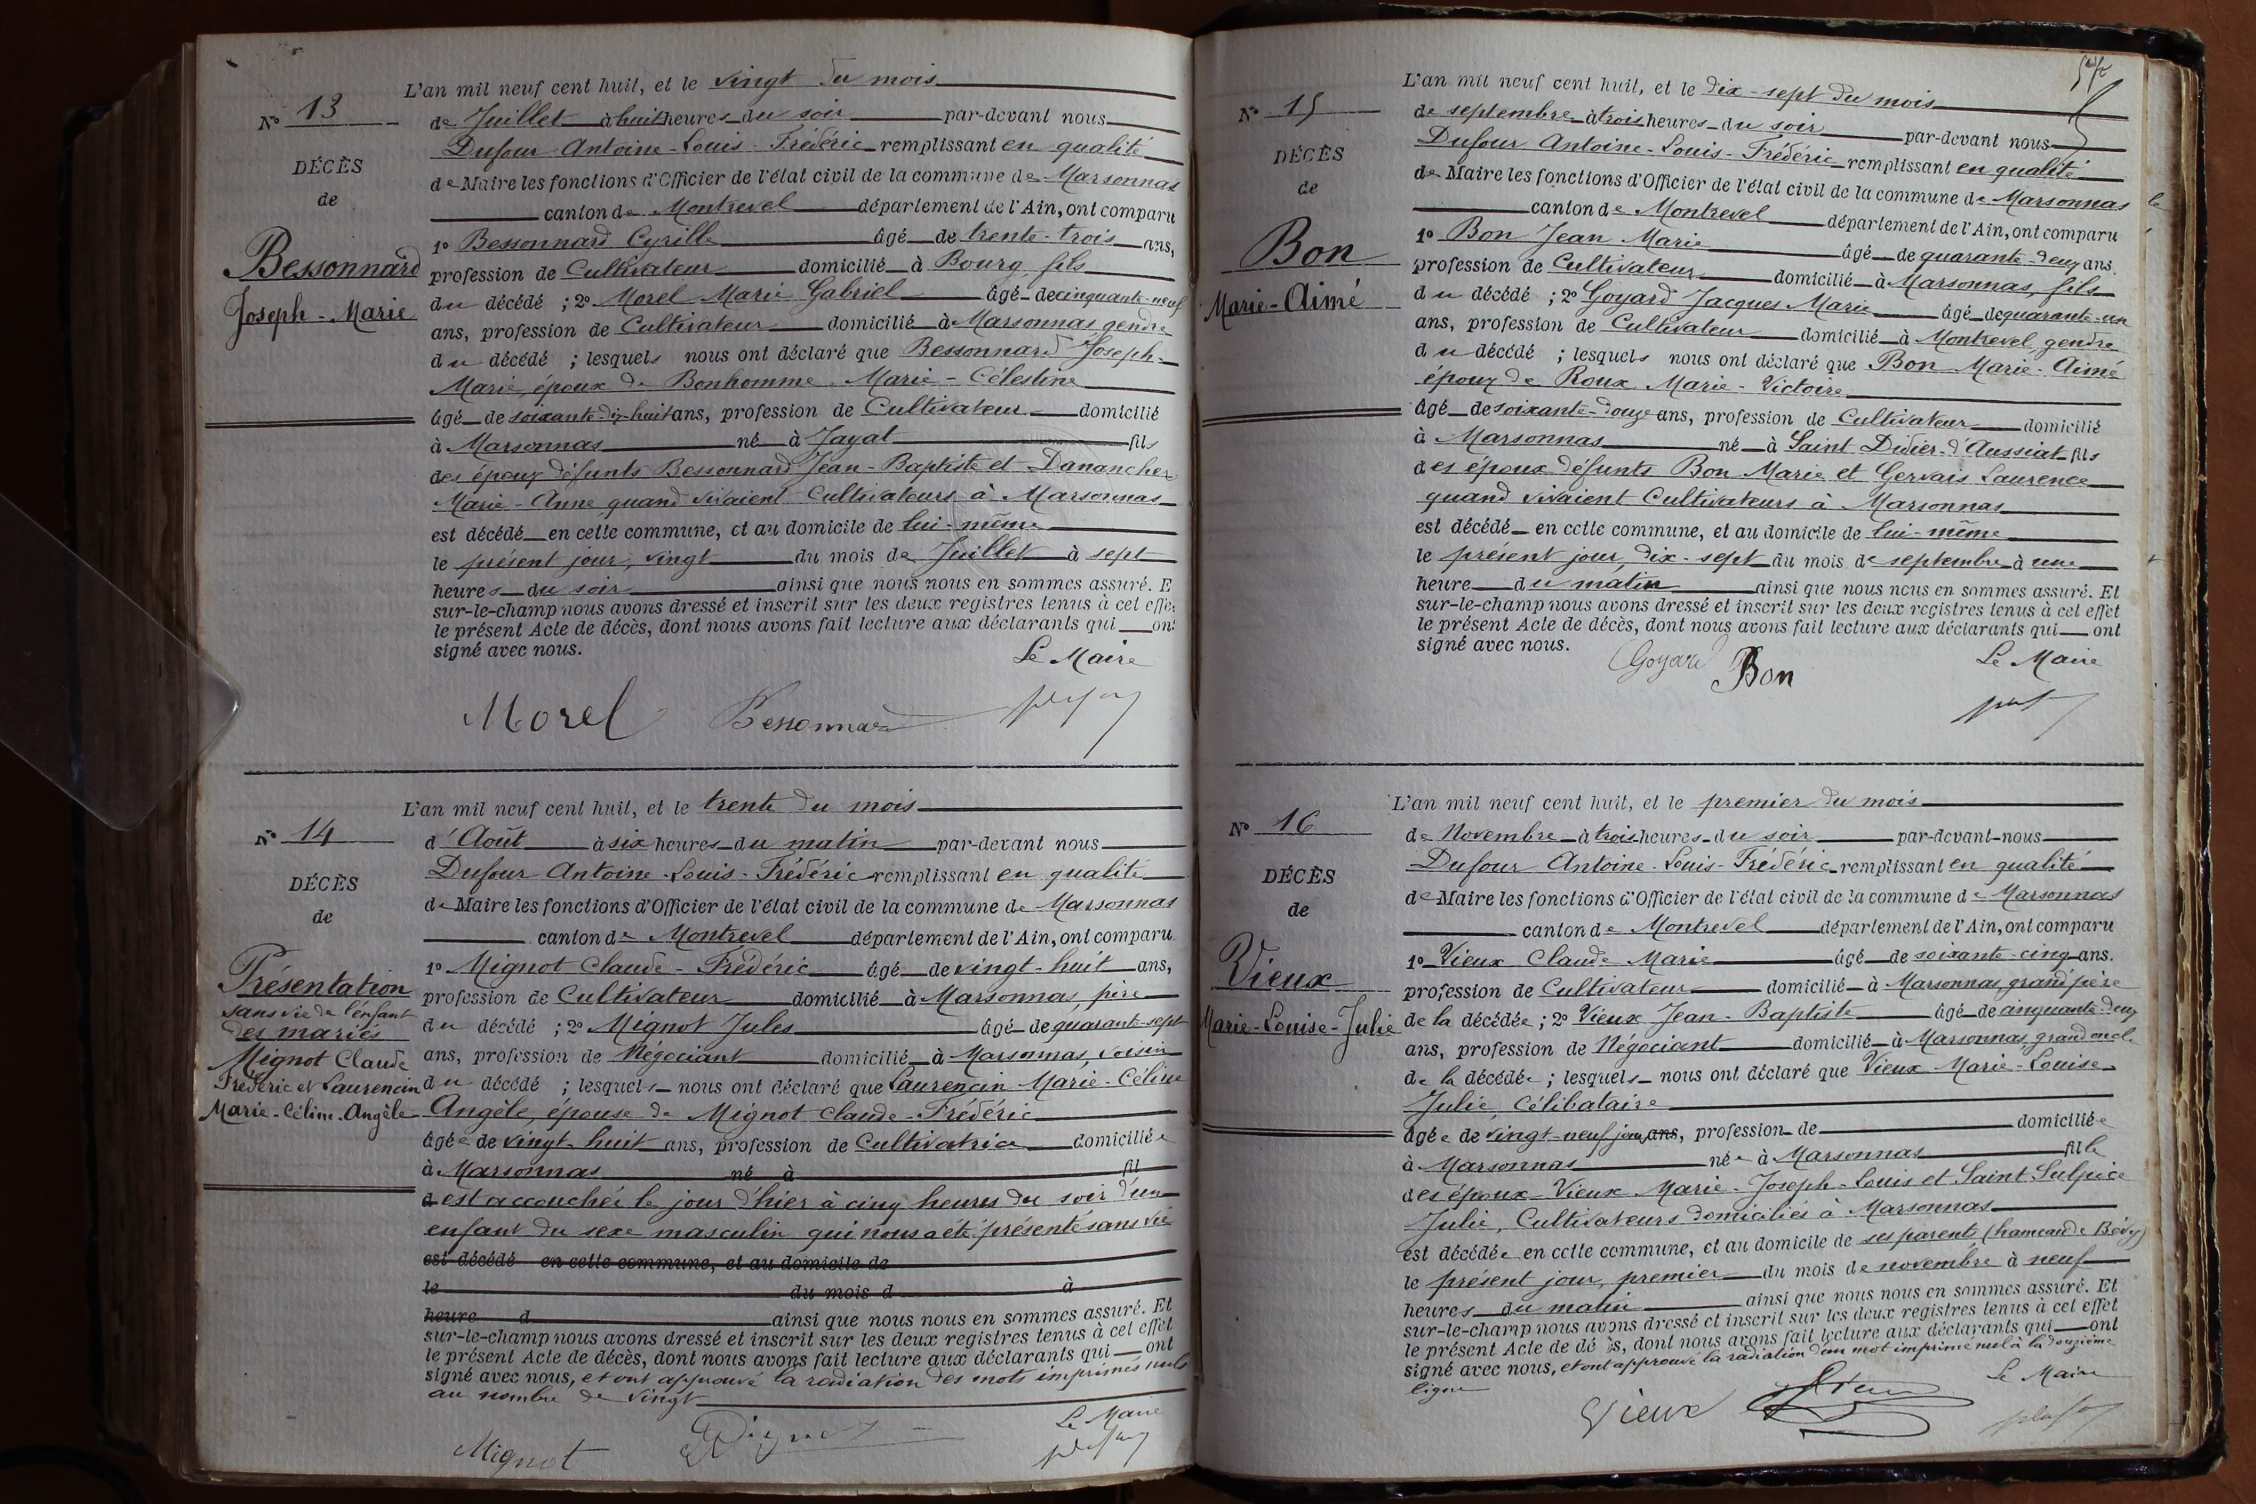 L'an mil neuf cent huit, et le vingt du mois
N° 13
de Juillet à huit heures du soir par-devant nous
Dufour Antoine-Louis-Frédéric remplissant en qualité
DÉCÈS
de Maire les fonctions d'Officier de l'état civil de la commune de Marsonnas
de
canton de Montrevel département de l'Ain, ont comparu
1° Bessonnard Cyrille âgé de trente-trois ans,
Bessonnard
profession de Cultivateur domicilié à Bourg, fils
Joseph-Marie
du décédé ; 2° Morel Marie Gabriel âgé de cinquante-neuf
ans, profession de Cultivateur domicilié à Marsonnas gendre
du décédé ; lesquels nous ont déclaré que Bessonnard Joseph-
Marie, époux de Bonhomme Marie-Célestine
âgé de soixante-dix-huit ans, profession de Cultivateur domicilié
à Marsonnas né à Jayat fils
des époux défunts Bessonnard Jean-Baptiste et Danancher
Marie-Anne quand vivaient Cultivateurs à Marsonnas
est décédé en cette commune, et au domicile de lui-même
le présent jour, vingt du mois de Juillet à sept
heures du soir ainsi que nous nous en sommes assuré. E
sur-le-champ nous avons dressé et inscrit sur les deux registres tenus à cet effe
le présent Acte de décès, dont nous avons fait lecture aux déclarants qui ont
signé avec nous.
Le Maire
Morel Bessonnard
L'an mil neuf cent huit, et le trente du mois
N° 14
d'Août à six heures du matin par-devant nous
Dufour Antoine-Louis-Frédéric remplissant en qualité
DÉCÈS
de Maire les fonctions d'Officier de l'état civil de la commune de Marsonnas
de
canton de Montrevel département de l'Ain, ont comparu
1° Mignot Claude-Frédéric âgé de vingt-huit ans,
Présentation
sans vie de l'enfant
des mariés
Mignot Claude
Frédéric et Laurencin
Marie-Céline-Angèle
profession de Cultivateur domicilié à Marsonnas, père
du décédé ; 2° Mignot Jules âgé de quarante-sept
ans, profession de Négociant domicilié à Marsonnas, voisin
du décédé ; lesquels nous ont déclaré que Laurencin Marie-Céline
Angèle, épouse de Mignot Claude-Frédéric
âgée de vingt-huit ans, profession de Cultivatrice domiciliée
à Marsonnas né à fil
d est accouchée le jour d'hier à cinq heures du soir d'un
enfant du sexe masculin qui nous a été présenté sans vie
est décédé en cette commune, et au domicile de
le du mois d à
heure d ainsi que nous nous en sommes assuré. Et
sur-le-champ nous avons dressé et inscrit sur les deux registres tenus à cet effet
le présent Acte de décès, dont nous avons fait lecture aux déclarants qui ont
signé avec nous, et ont approuvé la radiation des mots imprimés nuls
au nombre de vingt
Le Maire
Mignot Mignot
L'an mil neuf cent huit, et le dix-sept du mois
N° 15
de septembre à trois heures du soir par-devant nous
Dufour Antoine-Louis-Frédéric remplissant en qualité
DÉCÈS
de Maire les fonctions d'Officier de l'état civil de la commune de Marsonnas
de
canton de Montrevel département de l'Ain, ont comparu
1° Bon Jean Marie âgé de quarante-deux ans.
Bon
profession de Cultivateur domicilié à Marsonnas, fils
Marie-Aimé
du décédé ; 2° Goyard Jacques Marie âgé de quarante-un
ans, profession de Cultivateur domicilié à Montrevel gendre
du décédé ; lesquels nous ont déclaré que Bon Marie-Aimé
époux de Roux Marie-Victoire
âgé de soixante-douze ans, profession de Cultivateur domicilié
à Marsonnas né à Saint Didier-d'Aussiat fils
des époux défunts Bon Marie et Gervais Laurence
quand vivaient Cultivateurs à Marsonnas
est décédé en cette commune, et au domicile de lui-même
le présent jour, dix-sept du mois de septembre à une
heure du matin ainsi que nous nous en sommes assuré. Et
sur-le-champ nous avons dressé et inscrit sur les deux registres tenus à cet effet
le présent Acte de décès, dont nous avons fait lecture aux déclarants qui ont
signé avec nous.
Le Maire
Goyard Bon
L'an mil neuf cent huit, et le premier du mois
N° 16
de Novembre à trois heures du soir par-devant nous
Dufour Antoine-Louis-Frédéric remplissant en qualité
DÉCÈS
de Maire les fonctions d'Officier de l'état civil de la commune de Marsonnas
de
canton de Montrevel département de l'Ain, ont comparu
1° Vieux Claude Marie âgé de soixante-cinq ans.
Vieux
profession de Cultivateur domicilié à Marsonnas, grand père
Marie-Louise-Julie
de la décédée ; 2° Vieux Jean-Baptiste âgé de cinquante-deux
ans, profession de Négociant domicilié à Marsonnas, grand oncle
de la décédée ; lesquels nous ont déclaré que Vieux Marie-Louise
Julie, Célibataire
âgée de vingt-neuf jours ans, profession de domiciliée
à Marsonnas née à Marsonnas fille
des époux Vieux Marie-Joseph-Louis et Saint Sulpice
Julie, Cultivateurs domiciliés à Marsonnas
est décédée en cette commune, et au domicile de ses parents (hameau de Bévy)
le présent jour, premier du mois de novembre à neuf
heures du matin ainsi que nous nous en sommes assuré. Et
sur-le-champ nous avons dressé et inscrit sur les deux registres tenus à cet effet
le présent Acte de décès, dont nous avons fait lecture aux déclarants qui ont
signé avec nous, et ont approuvé la radiation d'un mot imprimé nul à la douzième
ligne
Le Maire
Vieux Vieux